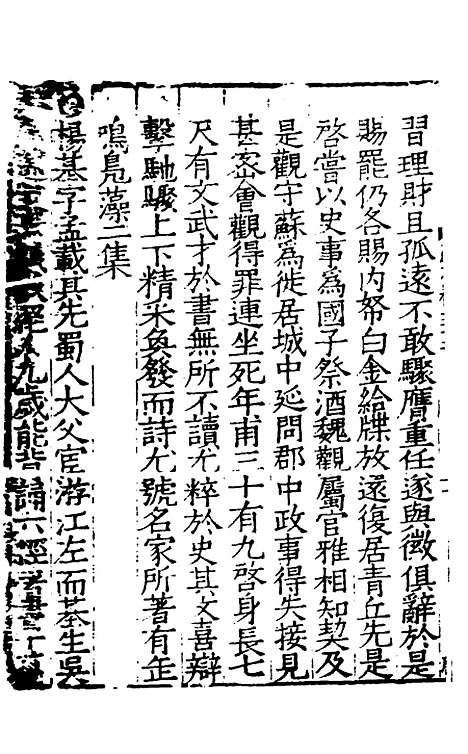 習理財且孤遠不敢驟膺重任遂與徵俱辭於是
賜罷仍各賜內帑白金給牒放還復居青丘先是
啓嘗以史事爲國子祭酒魏觀屬官雅相知契及
是觀守蘇爲徙居城中延問郡中政事得失接見
甚密會觀得罪連坐死年甫三十有九啓身長七
尺有文武才於書無所不讀尤粹於史其文喜辯
擊馳驟上下精采煥發而詩尤號名家所著有缶
鳴鳧藻二集
楊基字孟載其先蜀人大父宦游江左而基生吳
九歲能背誦六經